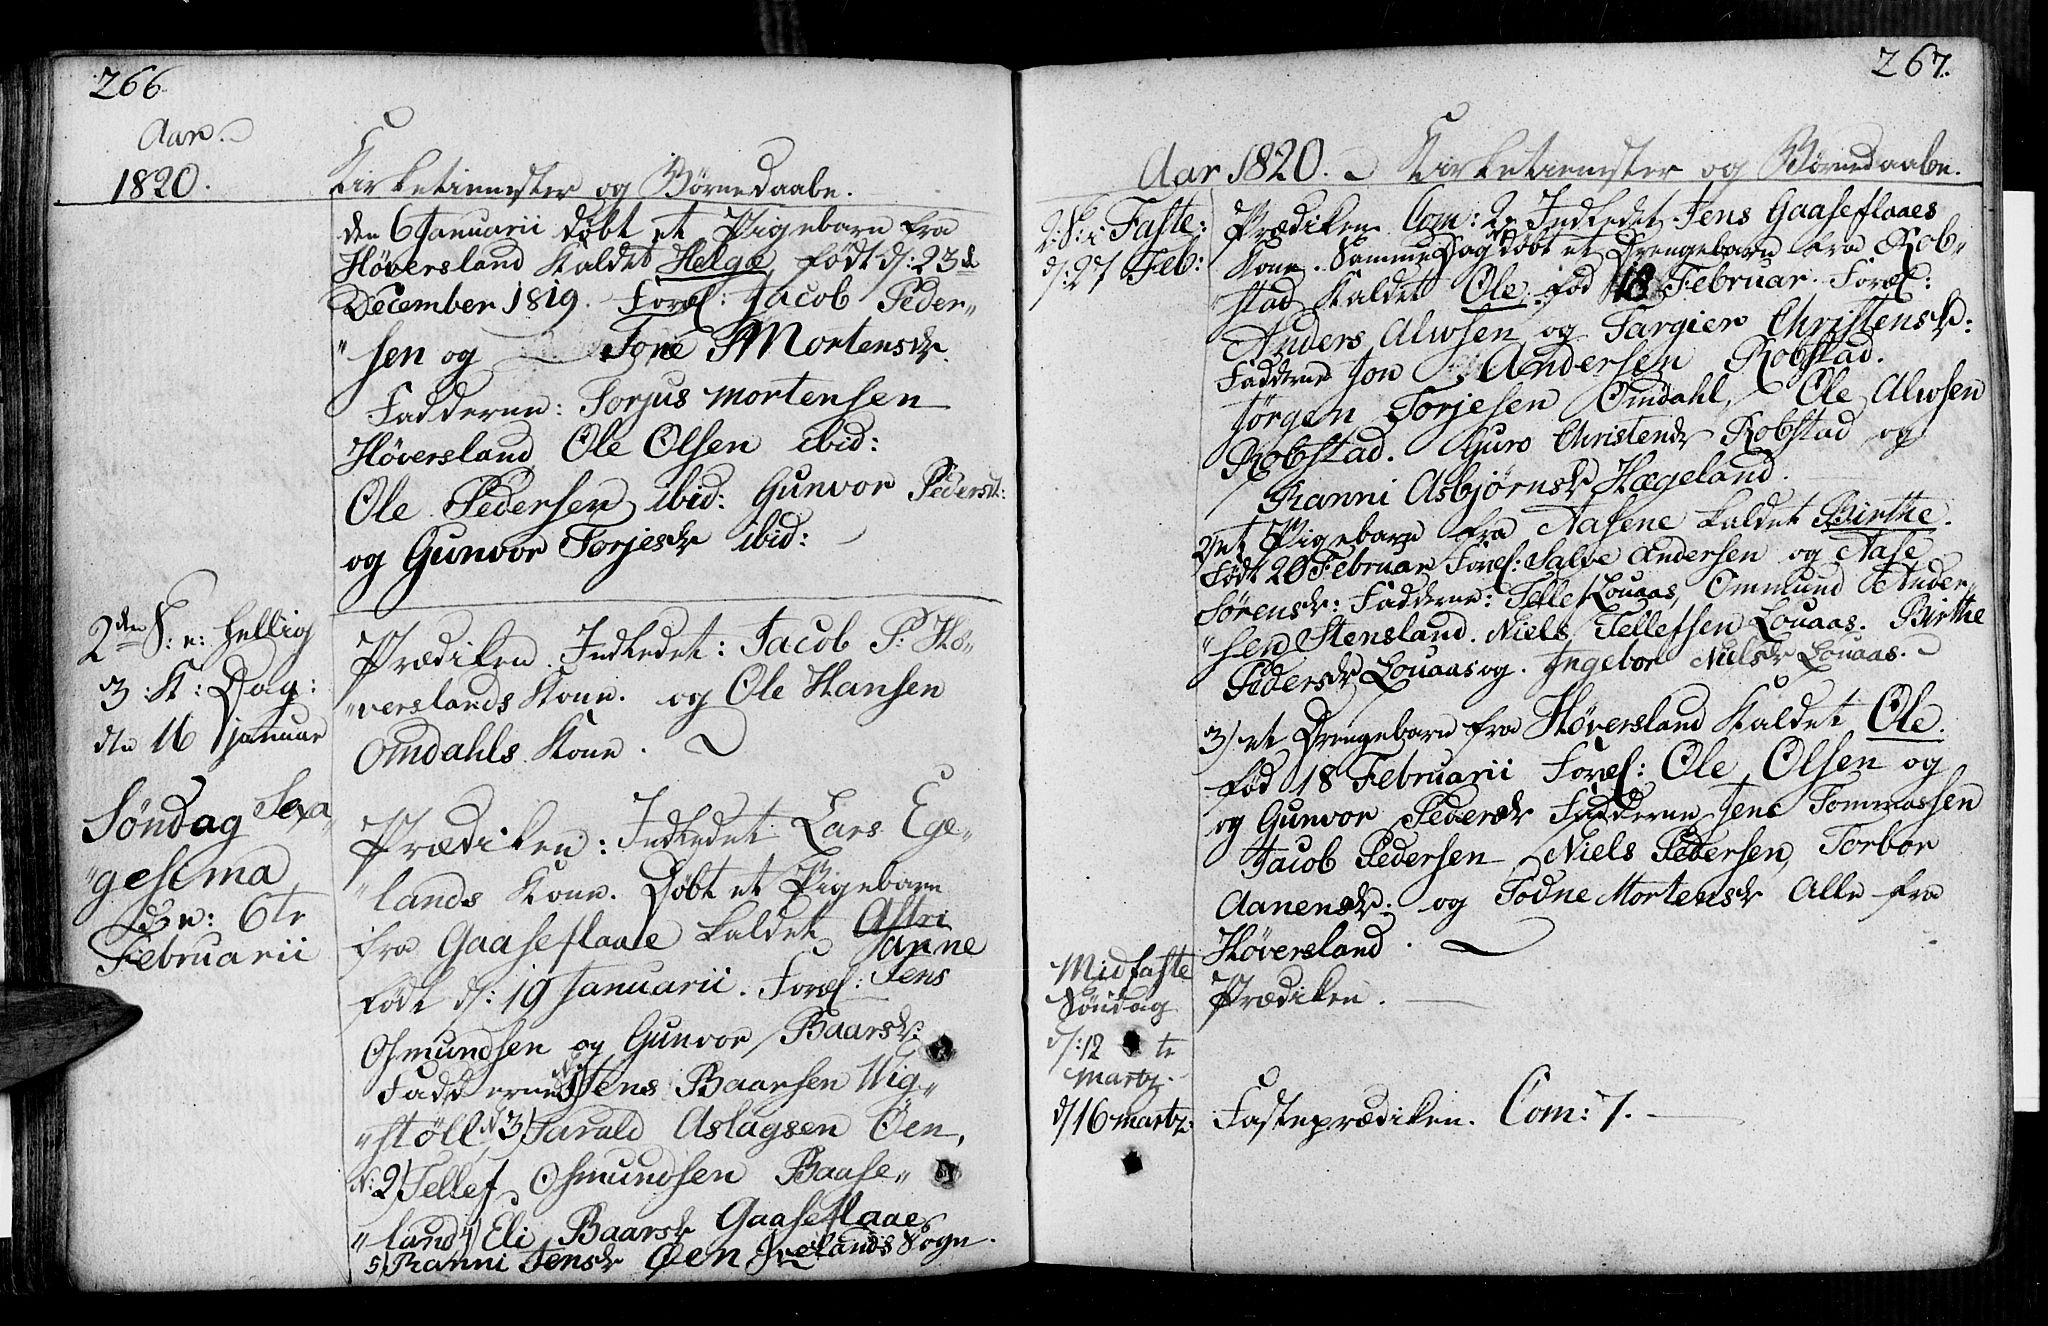 266
Aar.
1820.
Kirketienester og Børnedaabe.
den 6 Januarii døbt et Pigebarn fra
Høversland kaldet Helge, født d: 23de
December 1819. Foræl: Jacob Peder-
"sen og Tone Mortensdr
Fadderne: Torjus Mortensen
Høversland Ole Olsen ibid:
Ole Pedersen ibid: Gunvor Pedersdt:
og Gunvor Torjesdr ibid:
2den S: e: Hellig
3 K: Dag:
den 16 Januar
Prædiken. Indledet: Jacob P: Hø-
"verslands Kone. og Ole Hansen
Omdahls Kone.
Søndag Sexa-
"gesima
den: 6te
Februarii
Prædiken: Indledet Lars Ege-
"lands Kone. Døbt et Pigebarn
fra Gaaseflaae kaldet Astri
Janne
født d: 19 Januarii. Foræl: Jens
Osmundsen og Gunvor Baarsdr:
Fadderne N: 1) Jens Baarsen Wig-
"støll, N 3) Harald Aslagsen Øen,
N: 2) Tellef Osmundsen Baase-
"land 4) Eli Baarsdr Gaaseflaae
5) Ranni Jensdr Øen Sogn.
267.
Aar 1820. Kirketienester og Børnedaabe.
2: S: i Faste:
d: 27 Feb:
Prædiken. Com: 2. Indledet Jens Gaaseflaaes
Kone. Samme Dag døbt et Drengebarn fra Rob-
stad kaldet Ole, fød 18 Februar. Foræl:
Anders Alwsen og Targier Christensdr:
Fadderne Jon Andersen Robstad.
Jørgen Torjesen Omdahl, Ole Alwsen
Robstad. Guro Christensdr Robstad og
Ranni Asbjørnsdr Hægeland.
2) et Pigebarn fra Aasene kaldet Birthe.
født 20 Februar Foræl: Salve Andersen og Aase
Sørensdr: Fadderne: Tellef Louaas, Ommund Ander-
"sen Stensland. Niels Tellefsen Louaas. Birthe
Pedersdr Louaas og Ingebor Nielsdr Louaas.
3) et Drengebarn fra Høversland kaldet Ole.
fød 18 Februarii Foræl: Ole Olsen og
og Gunvor Pedersdr Fadderne Jens Tommassen
Jacob Pedersen Niels Pedersen, Torbor
Aanensdr: og Todne Mortensdr Alle fra
Høversland.
Midfaste
Søndag
d: 12 te
Martz.
Prædiken.
d/16 Martz:
Fasteprædiken. Com: 7.